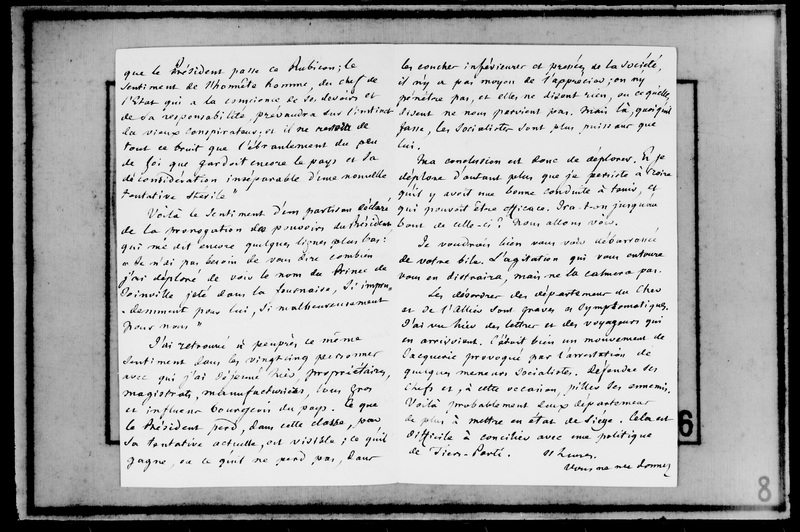 que le Président passe ce Rubicon; le
sentiment de l'honnête homme, du chef de
l'Etat qui a la conscience de ses devoirs et
de sa responsabilité, prévaudra sur l'instinct
du vieux conspirateur; et il ne restera de
tout ce bruit que l'ébranlement du peu
de foi que gardoit encore le pays et sa
déconsidération inséparable d'une nouvelle
tentative stérile"
Voilà le sentiment d'un partisan éclairé
de la prorogation des pouvoirs du Président
qui me dit encore quelques lignes plus bas:
" Je n'ai pas besoin de vous dire combien
j'ai déploré de voir le nom du Prince de
Joinville jeté dans la fournaise, si impru-
-demment pour lui, si malheureusement
pour nous "
J'ai retrouvé à peuprès ce même
sentiment dans les vingt cinq personnes
avec qui j'ai déjeuné hier, propriétaires,
magistrats, manufacturiers, tous gros
et influens bourgeois du pays. Ce que
le Président perd, dans cette classe, par
sa tentative actuelle, est visible; ce qu'il
gagne, ou ce qu'il ne perd pas, dans
les couches inférieures et pressées de la société,
il n'y a pas moyen de l'apprécier; on n'y
pénètre pas, et elles ne disent rien, ou ce qu'elles
disent ne nous parvient pas. Mais là, quoiqu'il
fasse, les Socialistes sont plus puissans que
lui.
Ma conclusion est donc de déplorer. Et je
déplore d'autant plus que je persiste à croire
qu'il y avoit une bonne conduite à tenir, et
qui pouvoit être efficace. Ira-t-on jusqu'au
bout de celle-ci? Nous allons voir.
Je voudrois bien vous voir débarrassée
de votre bile. L'agitation qui vous entoure
vous en distraira, mais ne la calmera pas.
Les désordres des départemens du Cher
et de l'Allier sont graves et symptomatiques.
J'ai vu hier des lettres et des voyageurs qui
en arrivoient. C'étoit bien un mouvement de
Jacquerie provoqué par l'arrestation de
quelques meneurs socialistes. Défendre ses
chefs et, à cette occasion, piller ses ennemis.
Voilà probablement deux départemens
de plus à mettre en état de siège. Cela est
difficile à concilier avec une politique
de Tiers-Parti.
11 heures.
Vous ne me donnez
6
8